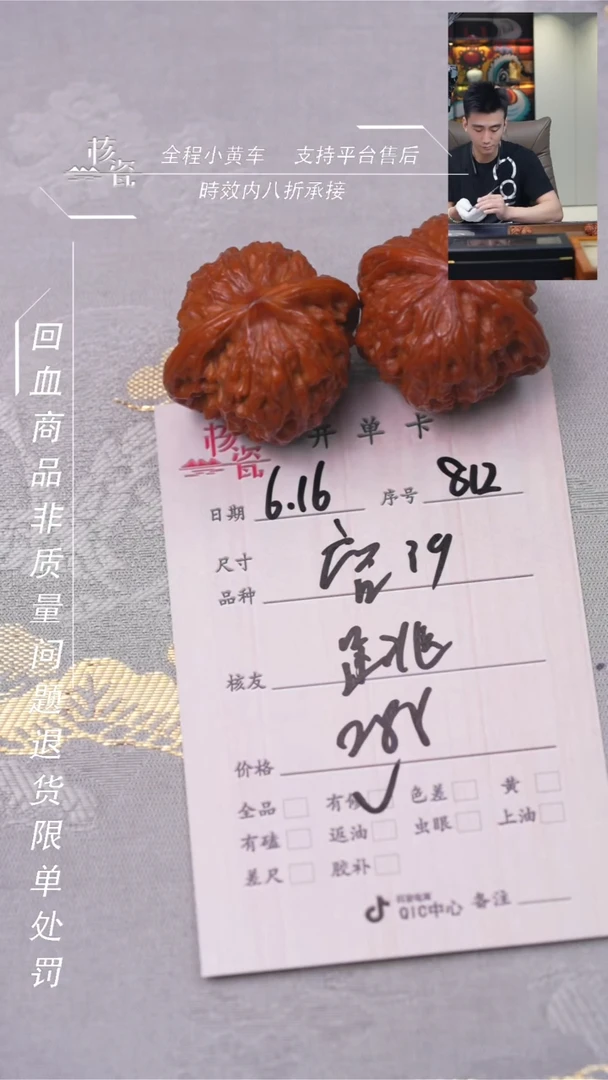 核瓷
全程小黄车 支持平台售后
時效内八折承接
回血商品非质量问题退货限单处罚
核瓷 开单卡
日期 6.16 序号 812
尺寸
品种 官 39
核友
价格 288
全品 有修 色差 黄
有磕 返油 虫眼 上油
差尺 胶补
QIC中心 备注